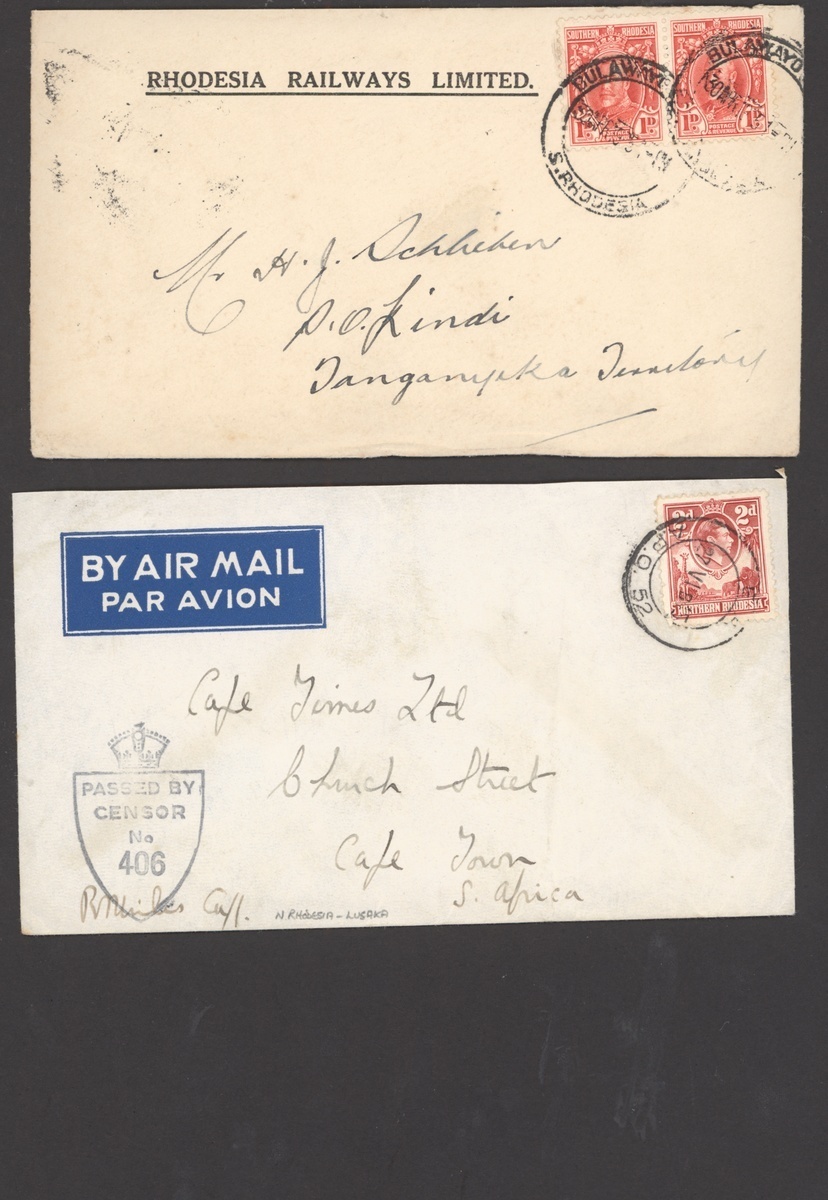 RHODESIA RAILWAYS LIMITED.
SOUTHERN RHODESIA SOUTHERN RHODESIA
1D. 1D. 1D.
POSTAGE & REVENUE POSTAGE & REVENUE
BULAWAYO BULAWAYO
S. RHODESIA
Mr H. J. Schlieben
P.O. Lindi
Tanganyika Territory
BY AIR MAIL
PAR AVION
2d 2d
NORTHERN RHODESIA
52
Cape Times Ltd
Church Street
Cape Town
S. Africa
PASSED BY
CENSOR
No
406
Capt.
N RHODESIA - LUSAKA